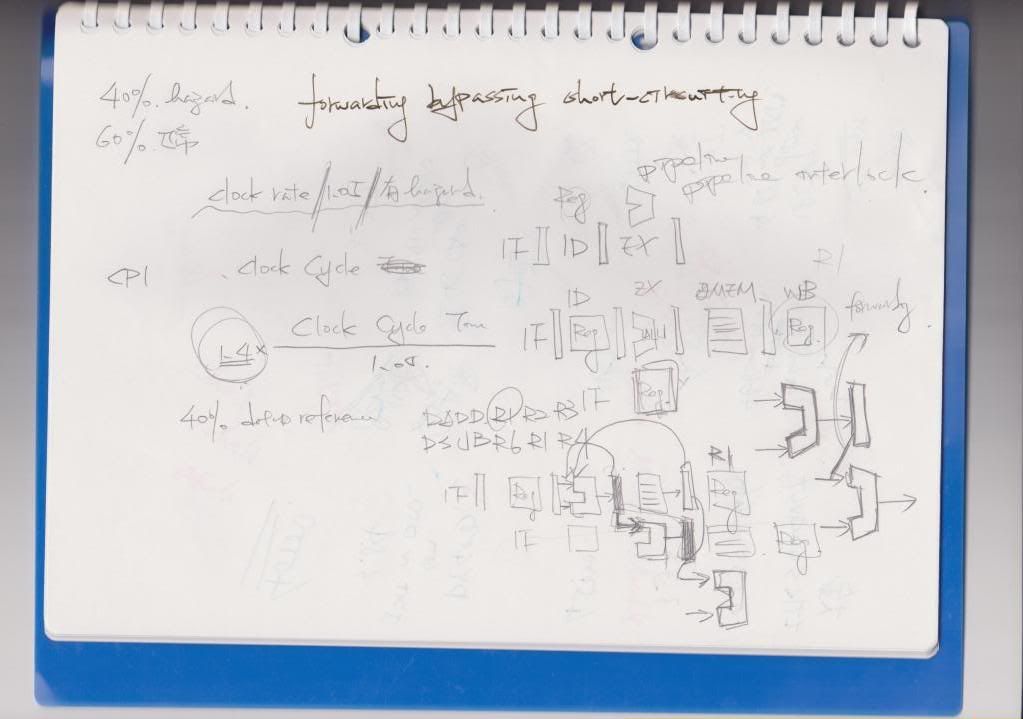 40% hazard.
forwarding bypassing short-circuiting
60% 正常
pipeline
pipeline interlock.
clock rate / 1.05 / 有 hazard.
Reg
IF ID EX
CPI
clock cycle
R1
ID EX DMEM WB
forwarding
Clock Cycle Time
IF Reg ALU Reg
1.4x
1.05.
IF Reg
40% data reference
DADD R1 R2 R3
DSUB R6 R1 R4
R1
IF Reg Reg
IF Reg